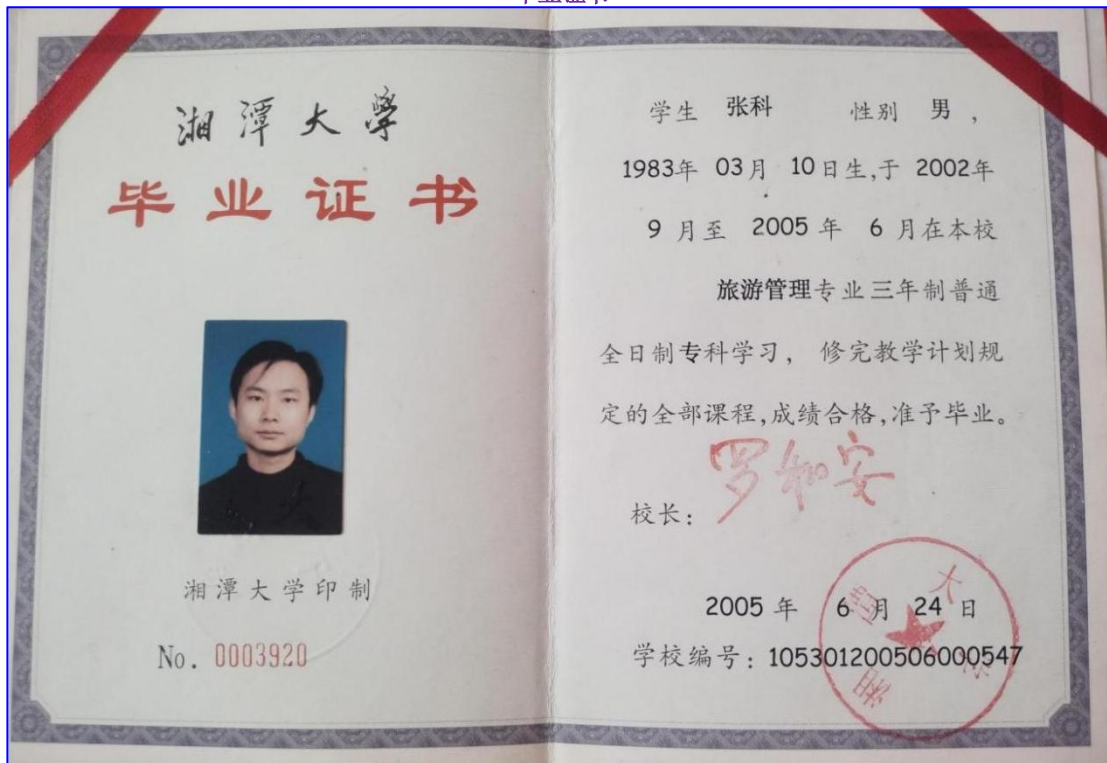 毕业证书
湘潭大学
毕业证书
湘潭大学印制
No. 0003920
学生 张科 性别 男,
1983年 03月 10日生,于 2002年
9 月至 2005 年 6 月在本校
旅游管理专业三年制普通
全日制专科学习, 修完教学计划规
定的全部课程,成绩合格,准予毕业。
校长: 罗和安
2005 年 6 月 24 日
学校编号: 105301200506000547
湘潭大学